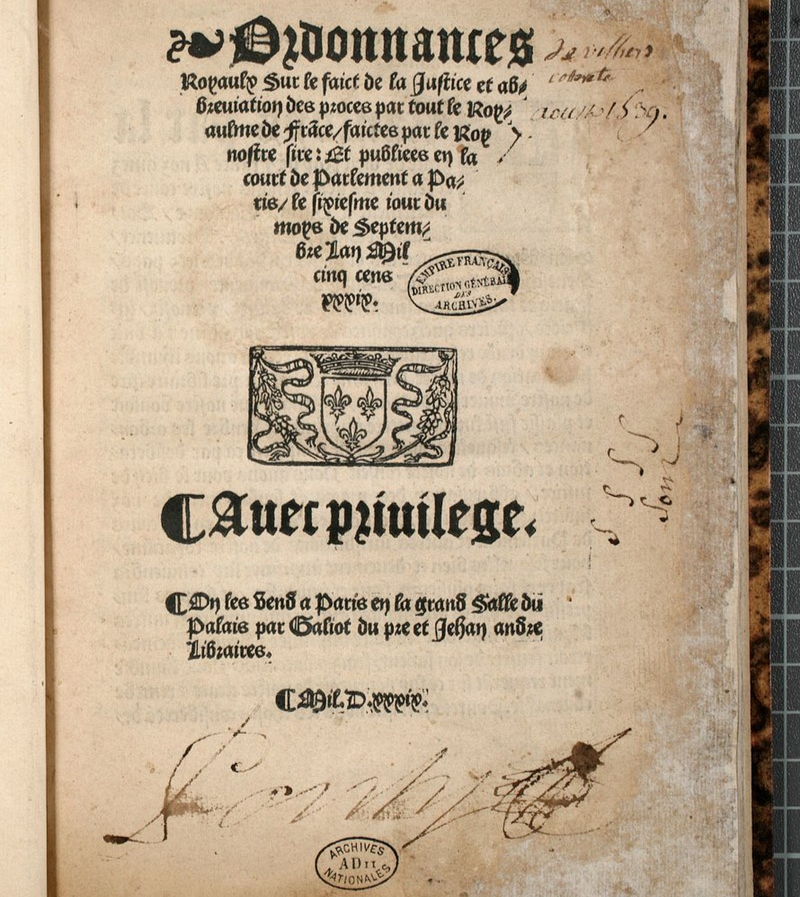 Ordonnances
Royaulx Sur le faict de la Justice et ab⸗
breuiation des proces par tout le Roy⸗
aulme de Frãce/faictes par le Roy
nostre sire: Et publiees en la
court de Parlement a Pa⸗
ris/ le sixiesme iour du
moys de Septem⸗
bre Lan Mil
cinq cens
xxxix.
de villers
aoust 1539.
EMPIRE FRANÇAIS
DIRECTION GÉNÉRALE
DES
ARCHIVES.
¶Auec priuilege.
¶On les vend a Paris en la grand Salle du
Palais par Galiot du pre et Jehan andre
Libraires.
¶Mil.D.xxxix.
ARCHIVES
AD II
NATIONALES